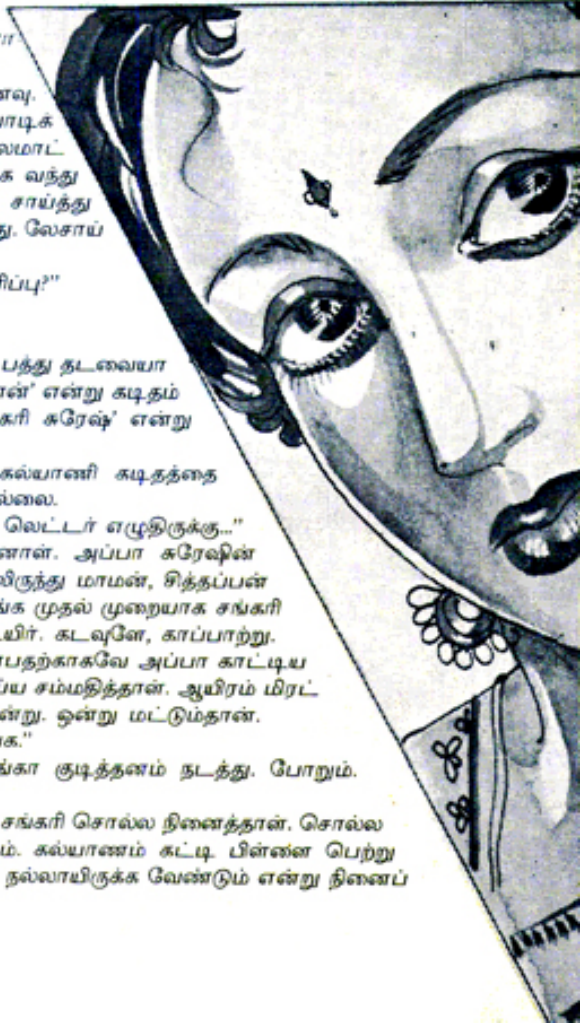 னவு.
ாடிக்
லமாட்
க வந்து
சாய்த்து
து. லேசாய்
ரிப்பு?"
பத்து தடவையா
ான்' என்று கடிதம்
கரி சுரேஷ்' என்று
கல்யாணி கடிதத்தை
ல்லை.
லெட்டர் எழுதிருக்கு..."
னாள். அப்பா சுரேஷின்
லிருந்து மாமன், சித்தப்பன்
ங்க முதல் முறையாக சங்கரி
யிர். கடவுளே, காப்பாற்று.
ன்பதற்காகவே அப்பா காட்டிய
ய்ய சம்மதித்தாள். ஆயிரம் மிரட்
ன்று. ஒன்று மட்டும்தான்.
க."
ங்கா குடித்தனம் நடத்து. போறும்.
சங்கரி சொல்ல நினைத்தாள். சொல்ல
ம். கல்யாணம் கட்டி பிள்ளை பெற்று
நல்லாயிருக்க வேண்டும் என்று நினைப்